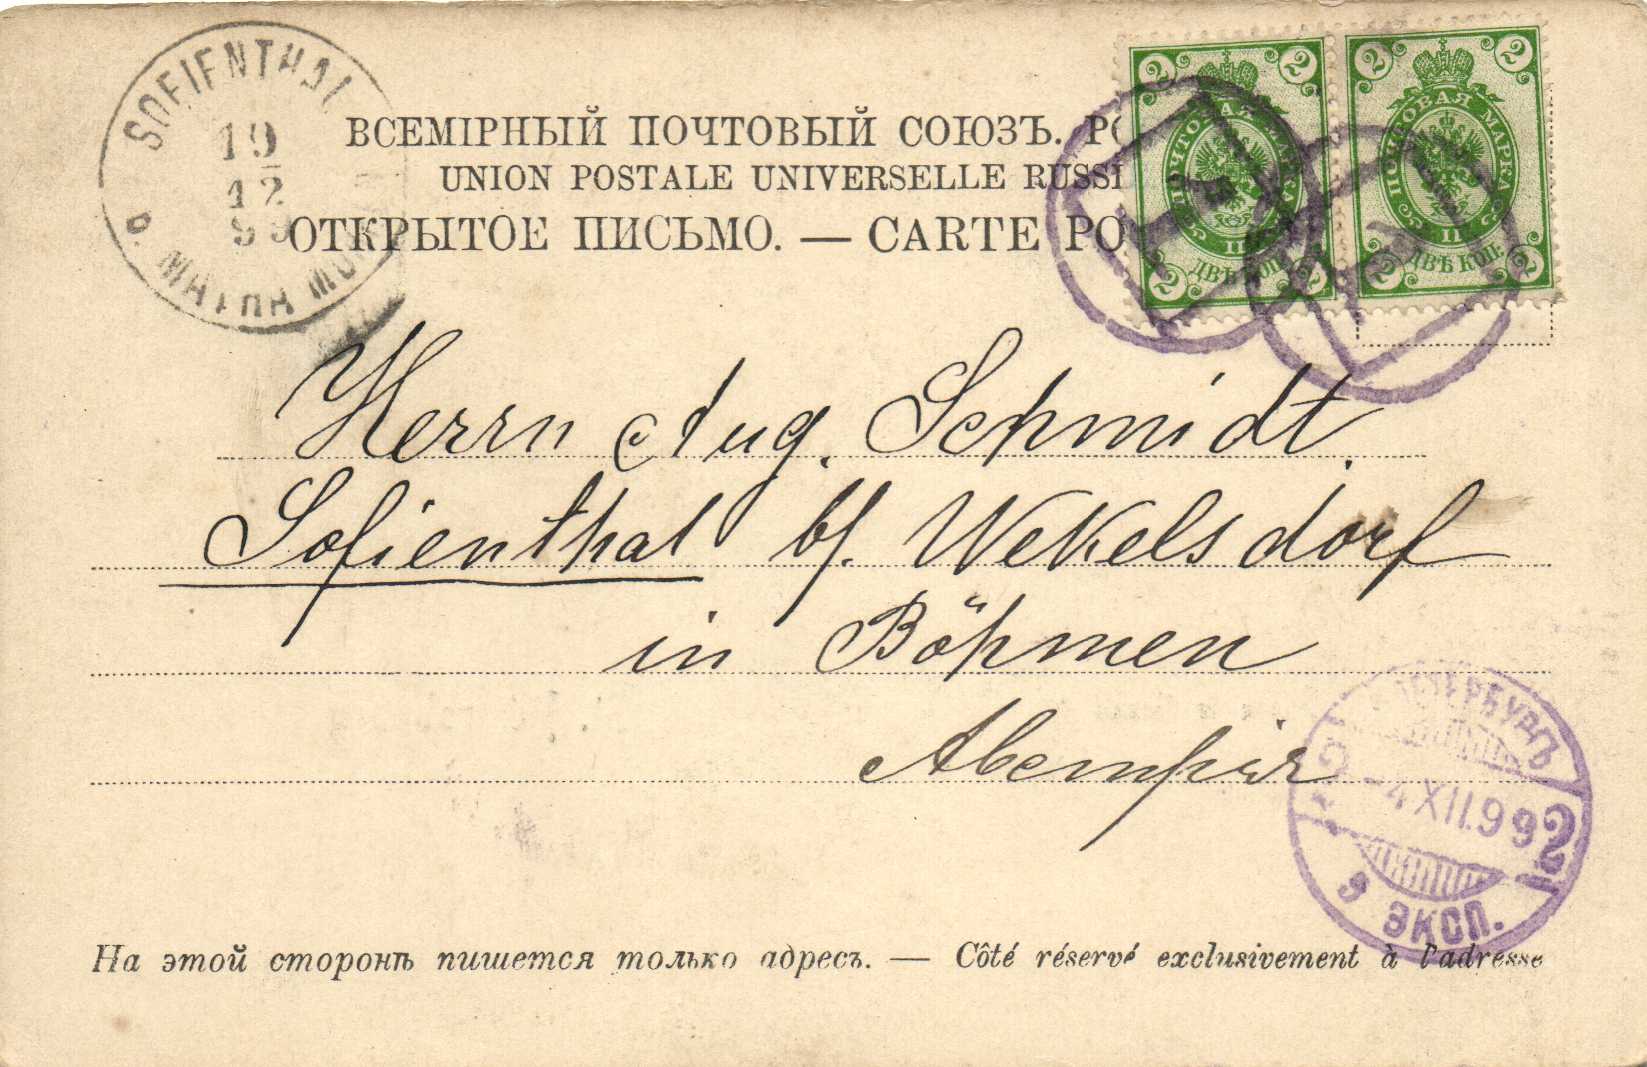 SOFIENTHAL
19
12
99
ВСЕМІРНЫЙ ПОЧТОВЫЙ СОЮЗЪ.
UNION POSTALE UNIVERSELLE RUSSI
ОТКРЫТОЕ ПИСЬМО. — CARTE PO
2 2
ПОЧТОВАЯ МАРКА
2 ДВѢ КОП. 2
2 2
ПОЧТОВАЯ МАРКА
2 ДВѢ КОП. 2
Herrn Aug. Schmidt.
Sofienthal b/. Wekelsdorf
in Böhmen
ПЕТЕРБУРГЪ
4 XII.99 2
9 ЭКСП.
На этой сторонѣ пишется только адресъ. — Côté réservé exclusivement à l'adresse